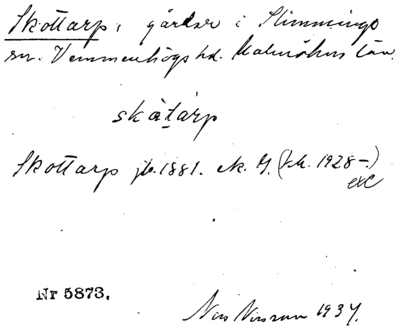 Skottarp, gårdar i Slimminge
sn. Vemmenhögs hd. Malmöhus län.
skåtarp
Skottarp jb. 1881. ek. G. (1928-)
exc
Nr 5873.
Nils Nilsson 1934.